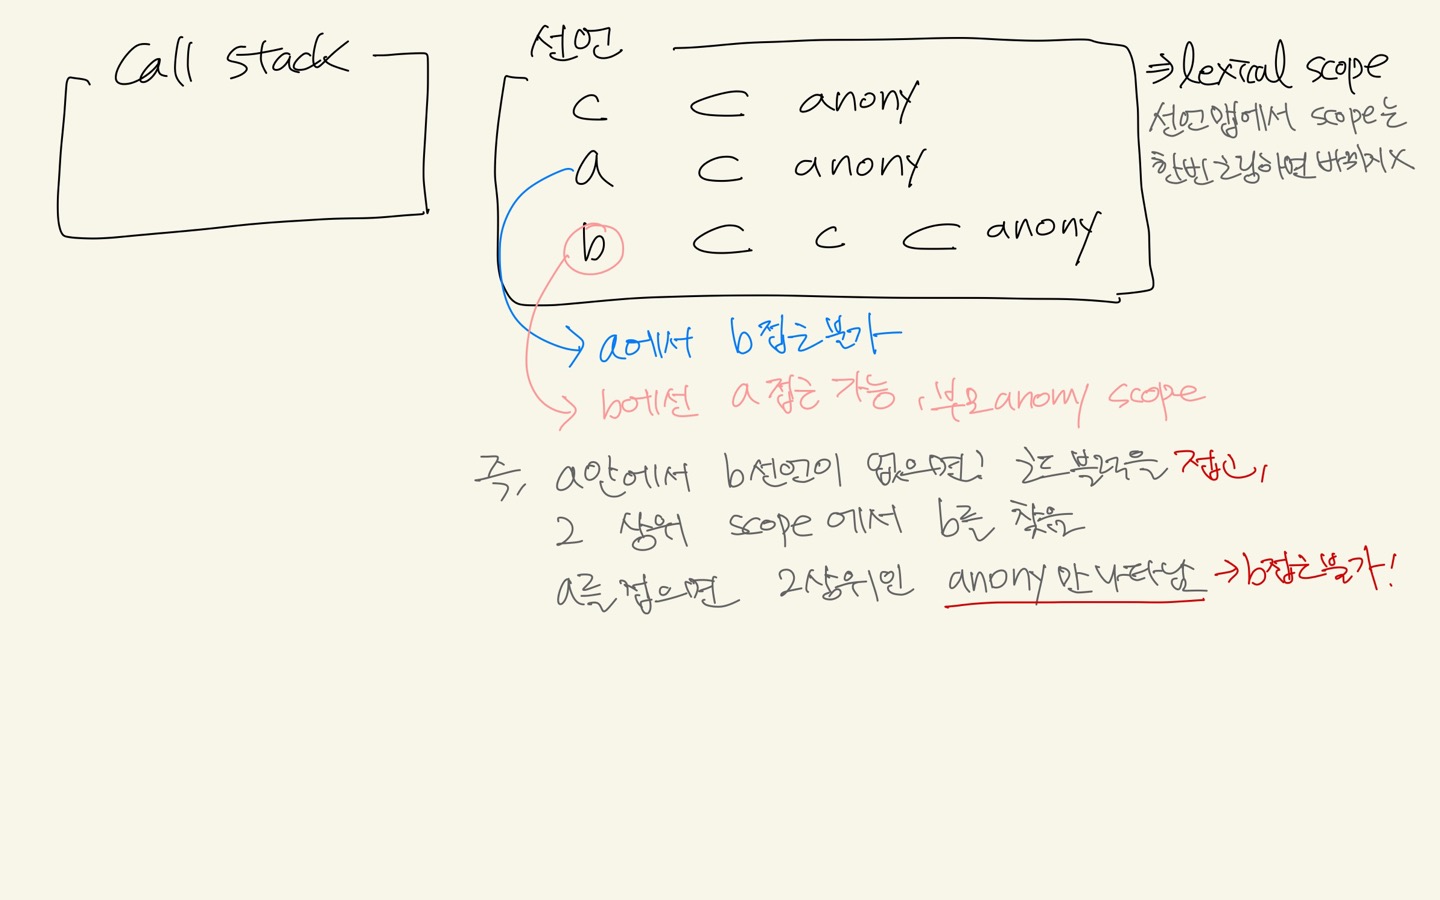 Call stack
선언
c ⊂ anony
a ⊂ anony
b ⊂ c ⊂ anony
⇒ lexical scope
선언맵에서 scope는
한번 그링하면 바뀌지 X
→ a에서 b접근불가
→ b에선 a접근 가능, 부모 anony scope
즉, a안에서 b선언이 없으면! 코드블럭을 접고,
그 상위 scope에서 b를 찾음
a를 접으면 그상위인 anony만 나타남 → b접근불가!